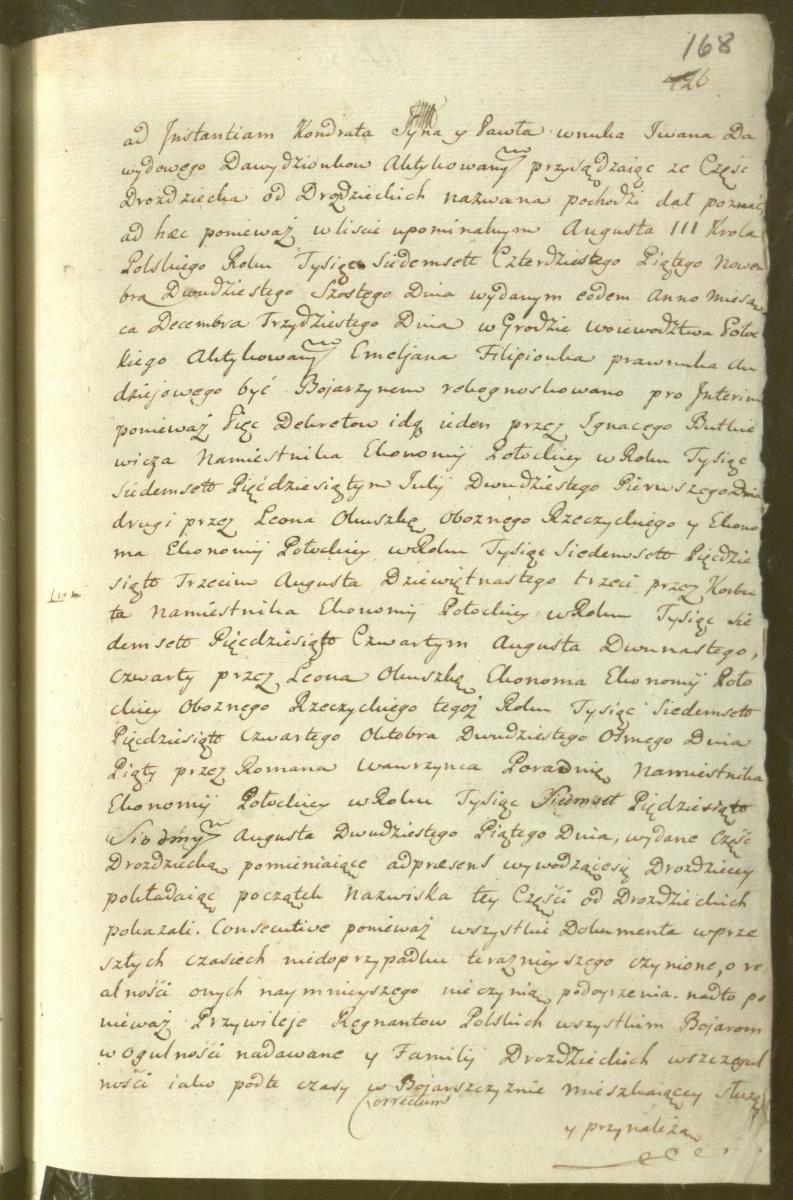 168
426
ad Instantiam Kondrata Syna y Pawła wnuka Iwana Da
wydowego Dawydzionkow Aktykowanym przysądzaiąc ze Część
Drozdziecka od Drozdzieckich nazwana pochodzi dał poznać,
ad hæc ponieważ w liscie upominalnym Augusta III Krola
Polskiego Roku Tysiąc Siedemsett Czterdziestego Piątego Nowem
bra Dwudziestego Szostego Dnia wydanym eodem Anno Miesią
ca Decembra Trzydziestego Dnia w Grodzie Woiewodztwa Połoc
kiego Aktykowanym Emeljana Filipionka prawnuka Au
dziejowego być Bojarzynem rekognoskowano pro Interim
ponieważ Pięć Dekretow idą ieden przez Ignacego Butkie
wicza Namiestnika Ekonomij Połockiey w Roku Tysiąc
Siedemsett Pięćdziesiątym Julij Dwudziestego Pierwszego Dnia
drugi przez Leona Okuszkę Oboznego Rzeczyckiego y Ekono
ma Ekonomij Połockiey w Roku Tysiąc Siedemsett Pięcdzie
siątt Trzecim Augusta Dziewiętnastego trzeci przez Korbu
ta Namiestnika Ekonomij Połockiey w Roku Tysiąc Sie
demsett Pięcdziesiątt Czwartym Augusta Dwunastego,
czwarty przez Leona Okuszkę Ekonoma Ekonomij Poło
ckiey Oboznego Rzeczyckiego tegoż Roku Tysiąc Siedemsett
Pięcdziesiątt czwartego Oktobra Dwudziestego Osmego Dnia
Piąty przez Romana Wawrzynca Poradnię Namiestnika
Ekonomij Połockiey w Roku Tysiąc Siedmset Pięcdziesiątt
Siodmym Augusta Dwudziestego Piątego Dnia, wydane Część
Drozdziecką pomieniaiące adpræsens wywodzącesię Drozdzieccy
pokładaiąc początek Nazwiska tey Części od Drozdzieckich
pokazali. Consecutive ponieważ wszystkie Dokumenta w prze
szłych czasiech niedoprzypadku teraznieyszego czynione, o re
alności onych naymnieyszego nieczynią podoyrzenia. nadto po
nieważ Przywileje Regnantow Polskich wszystkim Bojarom
w ogulności nadawane y Familij Drozdzieckich wszczegul
ności iako podte czasy w Bojarszczyznie mieszkaiącey służą
Correctum
y przynależą